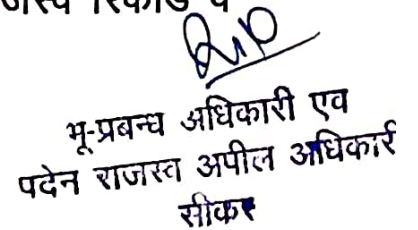 रिकार्ड
भू-प्रबन्ध अधिकारी एव
पदेन राजस्व अपील अधिकारी
सीकर